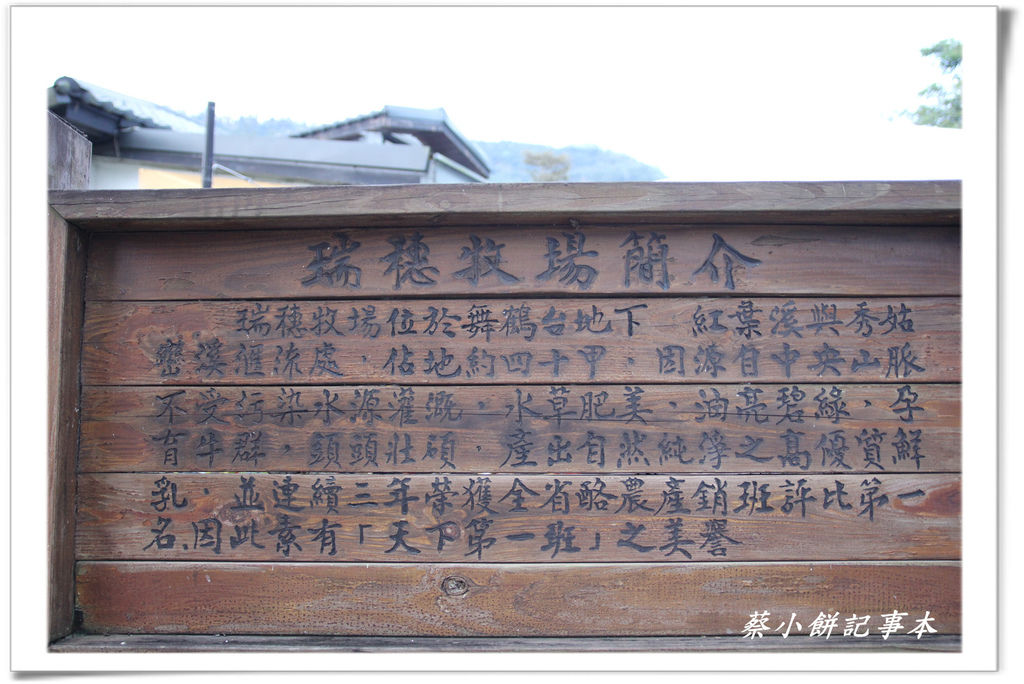 瑞穗牧場簡介
瑞穗牧場位於舞鶴台地下 紅葉溪與秀姑
巒溪滙流處，佔地約四十甲，因源自中央山脈
不受污染水源灌溉，水草肥美，油亮碧綠，孕
育牛群，頭頭壯碩，產出自然純淨之高優質鮮
乳，並連續三年榮獲全省酪農產銷班評比第一
名、因此素有「天下第一班」之美譽
蔡小餅記事本